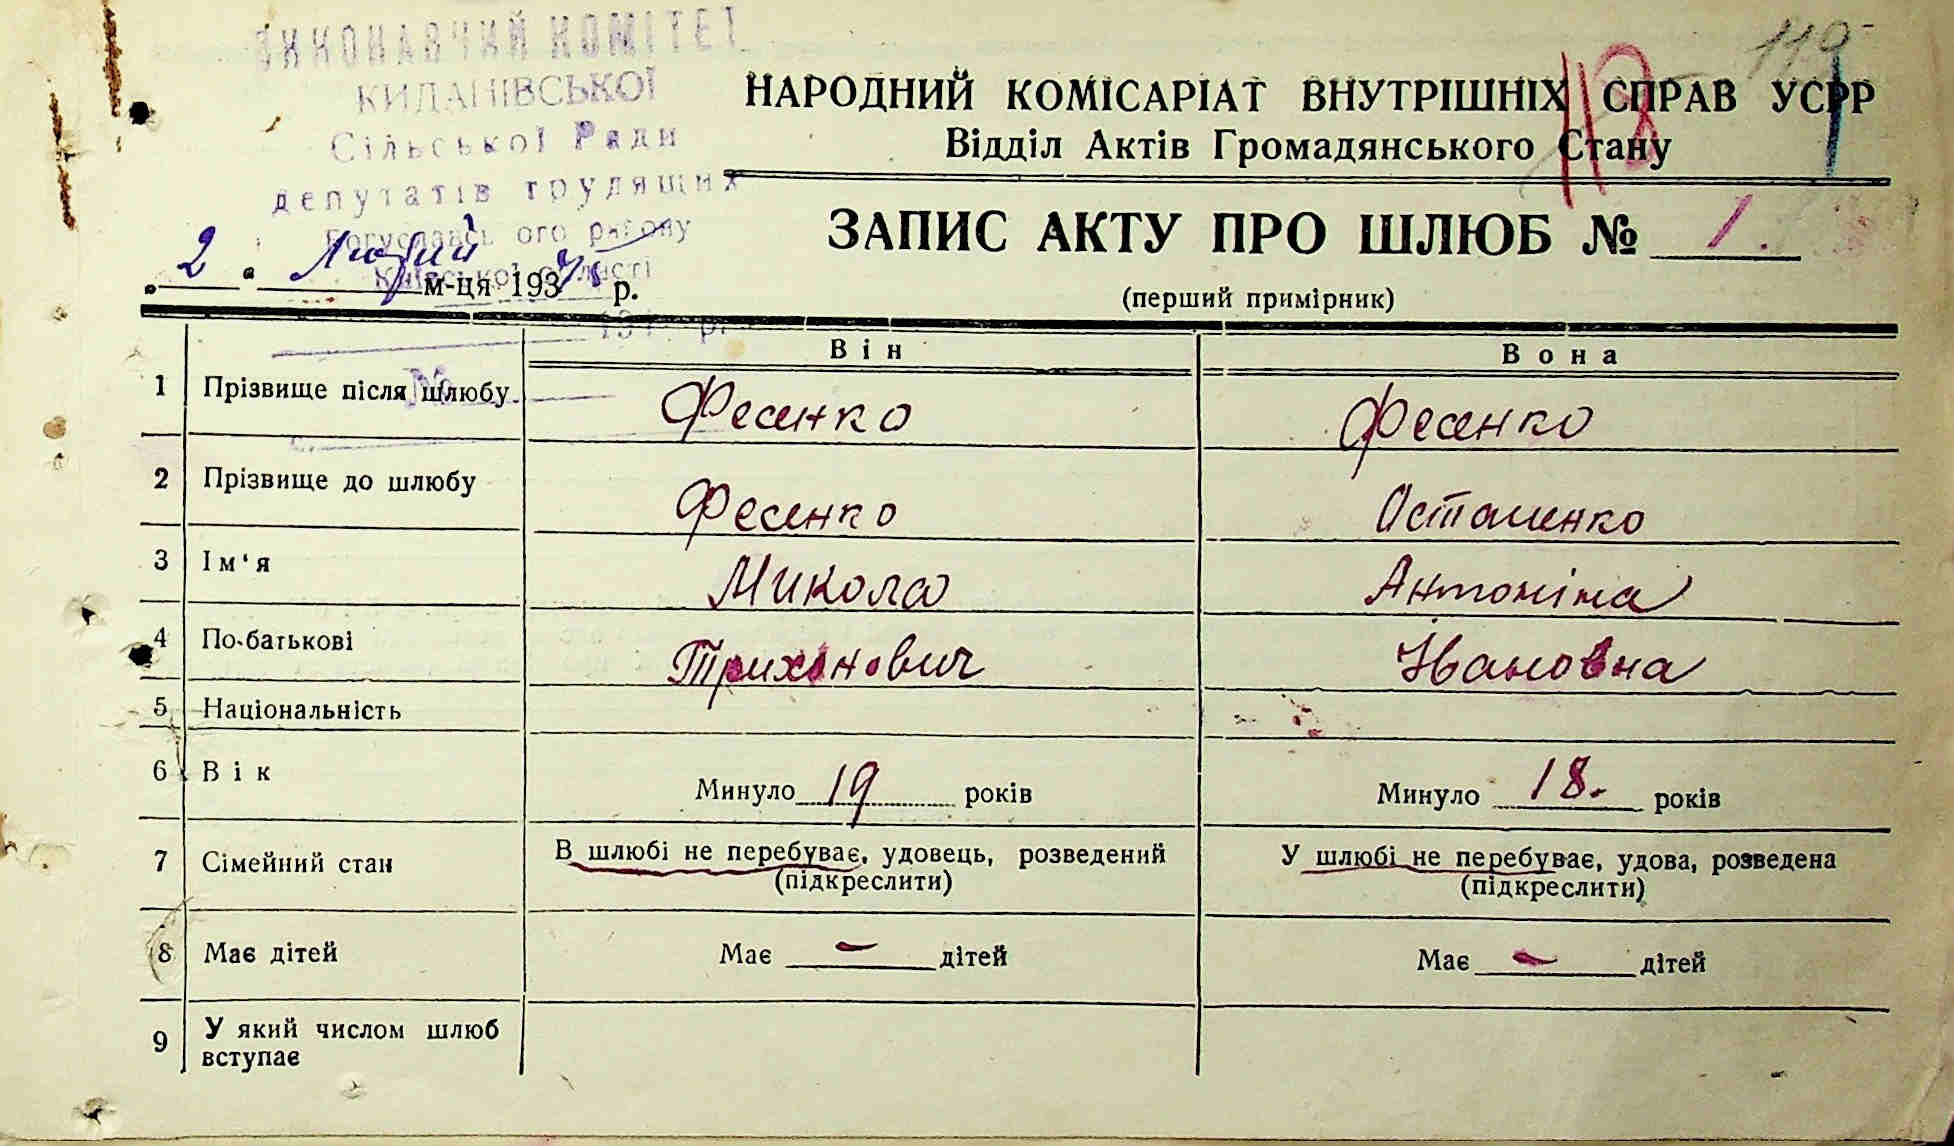 ВИКОНАВЧИЙ КОМІТЕТ
КИДАНІВСЬКОЇ
Сільської Ради
депутатів трудящих
Богуславського району
Київської області
194 р.
№
119
118
1
НАРОДНИЙ КОМІСАРІАТ ВНУТРІШНІХ СПРАВ УСРР
Відділ Актів Громадянського Стану
ЗАПИС АКТУ ПРО ШЛЮБ № 1.
(перший примірник)
2 Лютий м-ця 193 р.
Він Вона
1 Прізвище після шлюбу Фесенко Фесенко
2 Прізвище до шлюбу Фесенко Осташенко
3 Ім'я Микола Антоніна
4 По-батькові Трихонович Івановна
5 Національність
6 Вік Минуло 19 років Минуло 18. років
7 Сімейний стан В шлюбі не перебуває, удовець, розведений У шлюбі не перебуває, удова, розведена
(підкреслити) (підкреслити)
8 Має дітей Має — дітей Має — дітей
9 У який числом шлюб
вступає